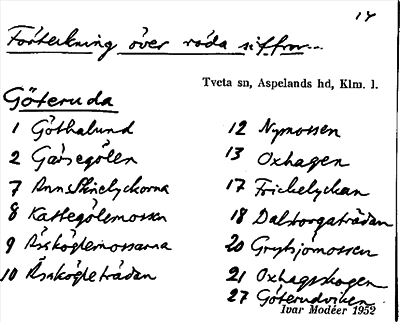 14
Förteckning över röda siffror
Tveta sn, Aspelands hd, Klm. l.
Göteruda
1 Göthalund
2 Gåsegölen
7
8 Kattegölemossen
9 Äsköglemossarna
10 Äsköglethådan
12 Nymossen
13 Oxhagen
17 Frickelyckan
18
20 Grytsjömossen
21 Oxhagskogen
27 Göterudviken
Ivar Modéer 1952